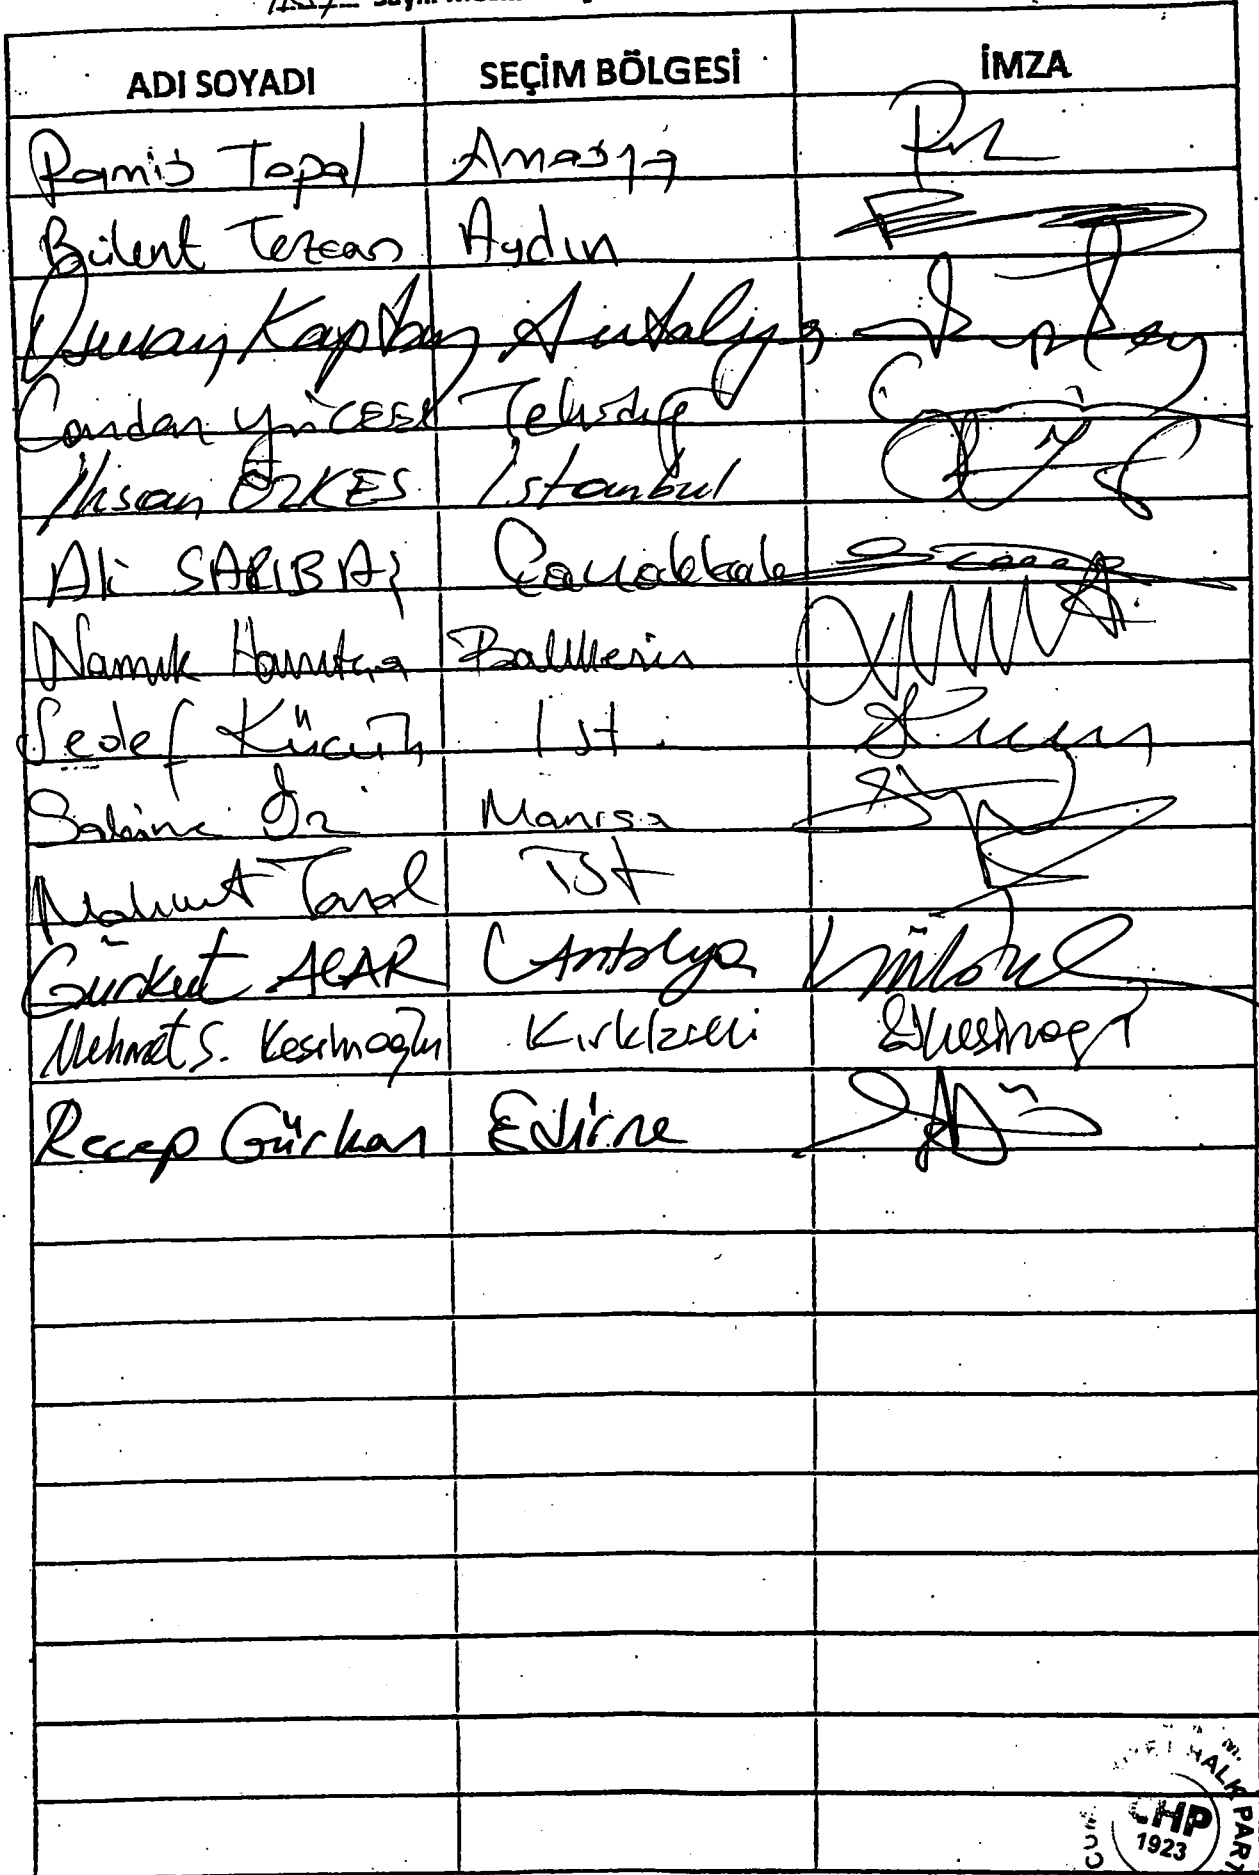 Sayın
ADI SOYADI SEÇİM BÖLGESİ İMZA
Ramis Topal Amasya
Bülent Tezcan Aydın
Osman Kaptan Antalya
Candan YÜCEER Tekirdağ
İhsan ÖZKES İstanbul
Ali SARIBAŞ Çanakkale
Namık Havutça Balıkesir
Sedef Küçük İst.
Sakine Öz Manisa
Mahmut Tanal İST
Gürkut ACAR Antalya
Mehmet S. Kesimoğlu Kırklareli
Recep Gürkan Edirne
HALK PARTİ
CUM
CHP
1923